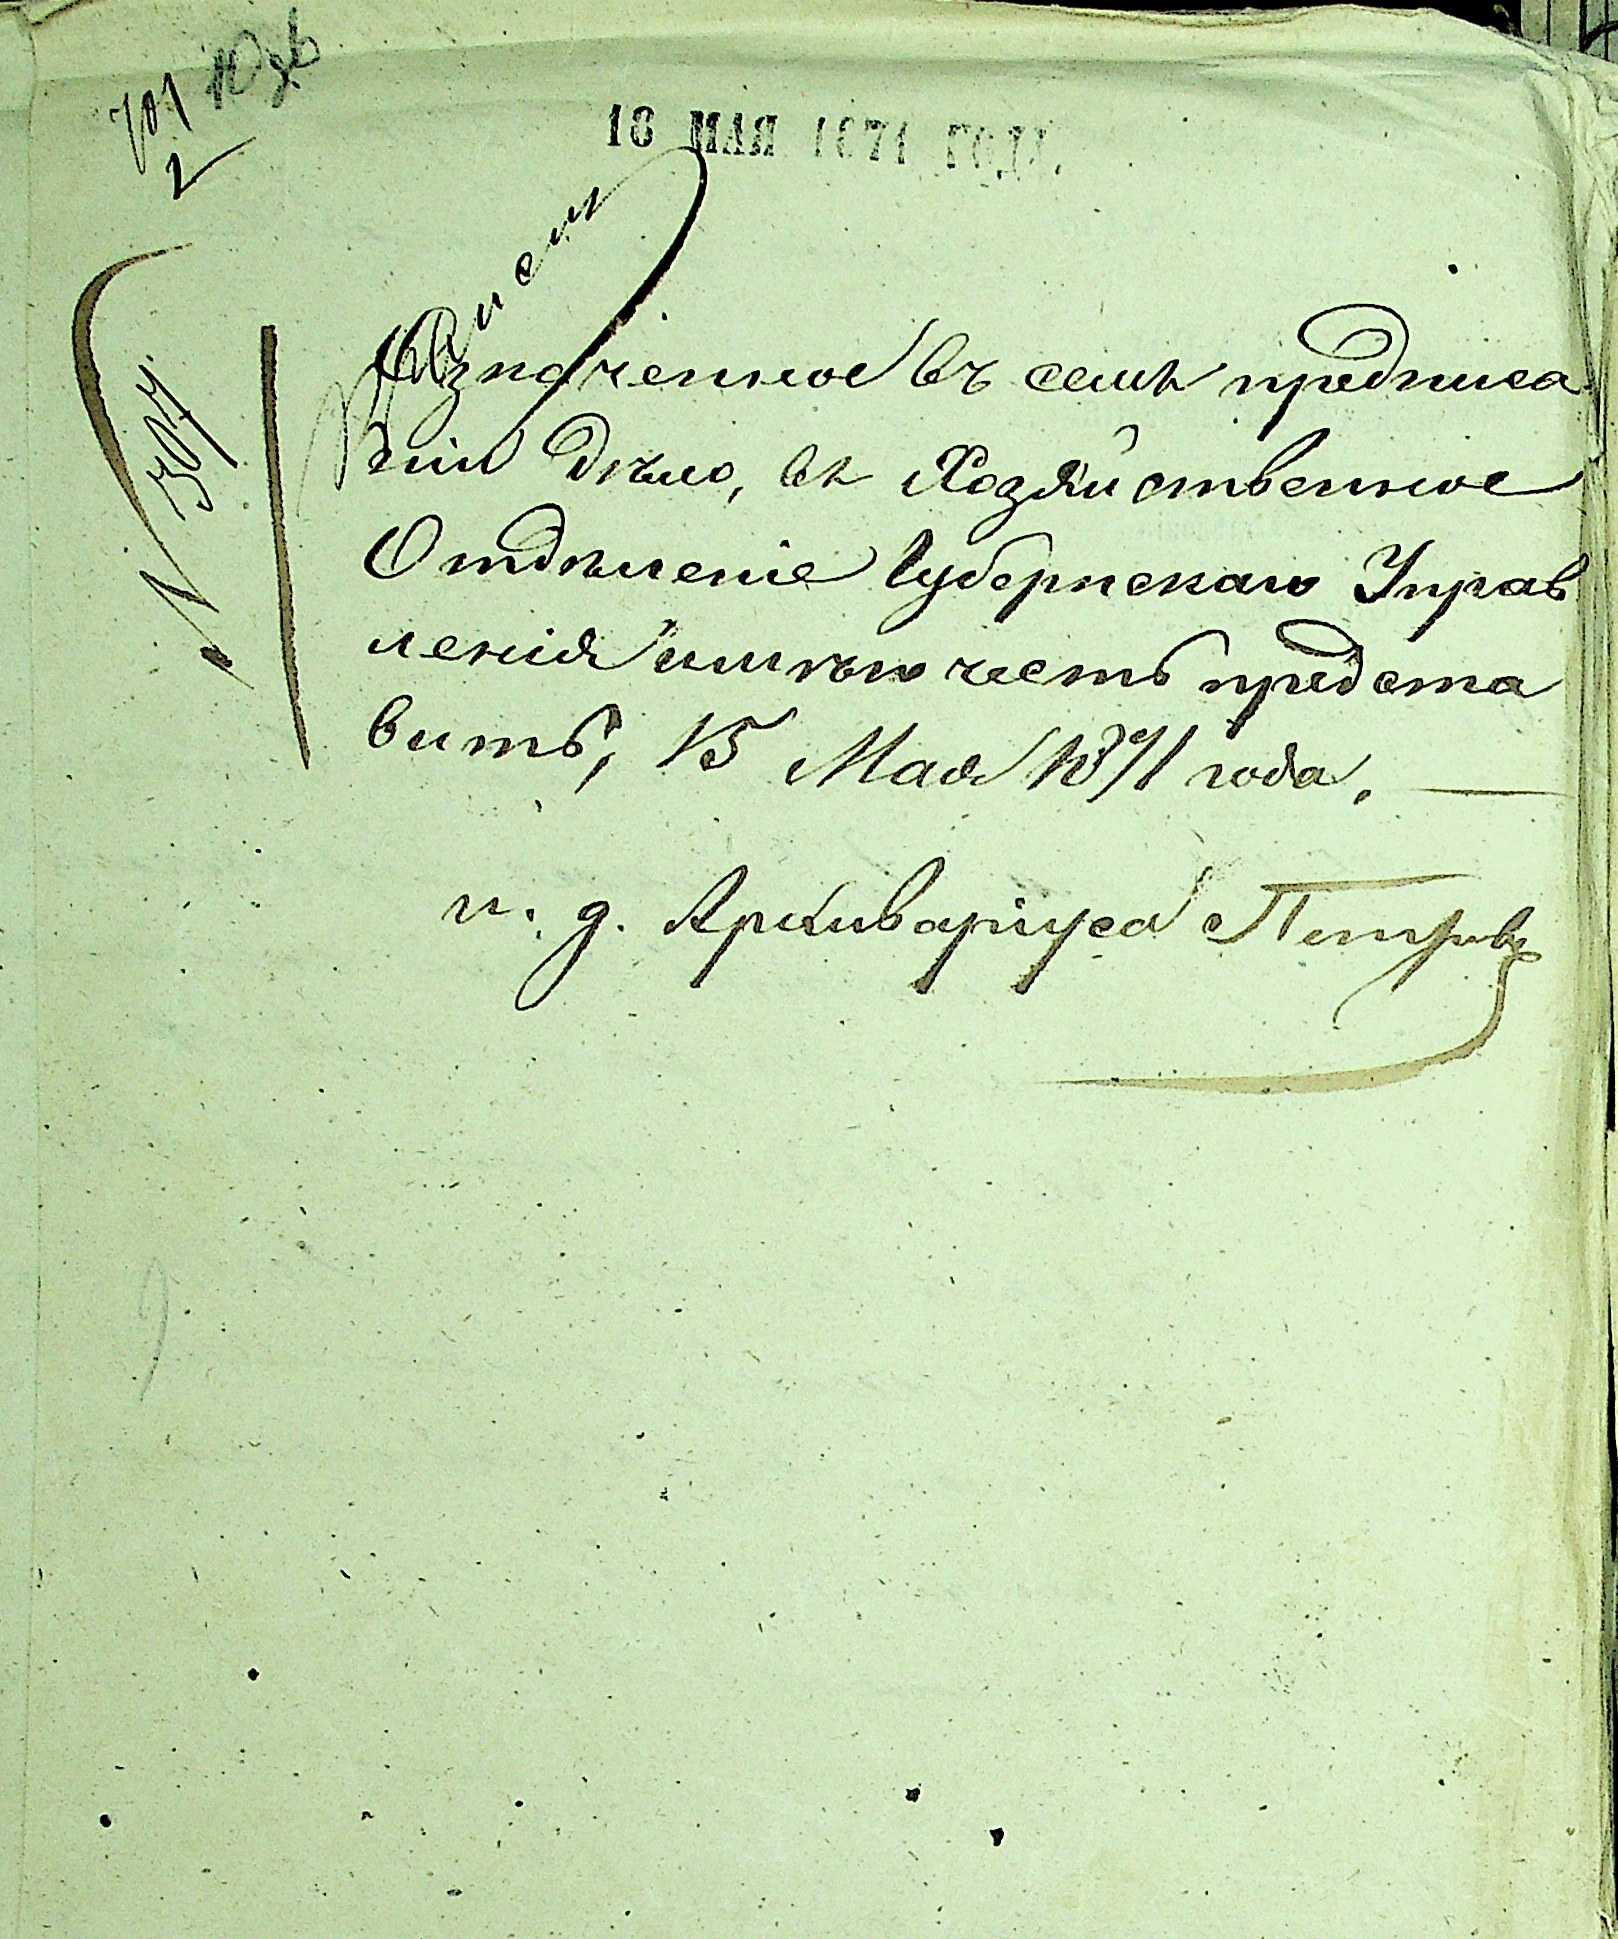 701
2
18 МАЯ 1871 ГОДА.
№ 307
Означенное въ семъ предписа
нiи дѣло, въ Хозяйственное
Отдѣленiе Губернскаго Управ
ленiя имѣю честь предста
вить, 15 Мая 1871 года.
и. д. Архиварiуса Петровъ